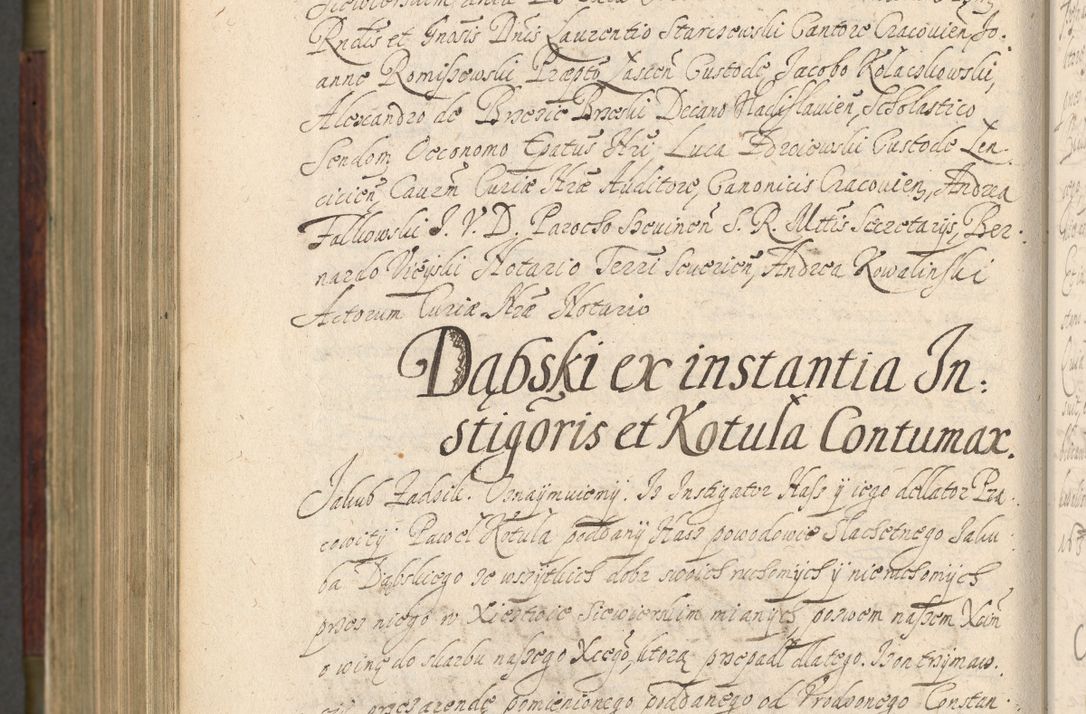 Rndis et Gnosis Dnis Laurentio Starczewski Cantore Cracovien, Jo.
anne Romiszewski Præpto, Lascen Custode, Jacobo Kołaczkowski,
Alexandro de Brzezie Brzeski Decano Vladislavien, Scholastico
Sendom, Oeconomo Epatus Nri, Luca Dorciewski Custode Len.
cicien, Causm Curiæ Nræ Auditore, Canonicis Cracovien, Andrea
Falkowski J. V. D. Parocho Siewinen S. R. Mttis Secretarijs, Ber:
nardo Viejski Notario Terri Severien, Andrea Kowalinski
Actorum Curiæ Nræ Notario
Dąbski ex instantia In:
stigoris et Kotula Contumax.
Jakub Zadzik. Oznaymuiemy. Iż Instigator Nasz y iego dellator Pra:
cowity Paweł Kotula poddany Nasz powodowie Slachetnego Jaku:
ba Dąbskiego ze wszytkich dobr swoich ruchomych y nieruchomych
przez niego w Xiestwie Siewierskim mianych, pozwem naszem Xcim
o winę do skarbu naszego Xcego, ktorą przepadł dlatego. Iż on trzymaw.
pomienionego poddanego od Urodzonego Constan: